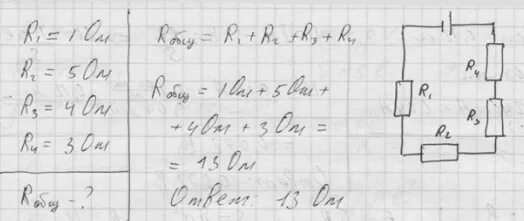 R₁ = 1 Ом
R₂ = 5 Ом
R₃ = 4 Ом
R₄ = 3 Ом
Rобщ - ?
Rобщ = R₁ + R₂ + R₃ + R₄
Rобщ = 1 Ом + 5 Ом +
+ 4 Ом + 3 Ом =
= 13 Ом
Ответ: 13 Ом
R₁
R₂
R₃
R₄